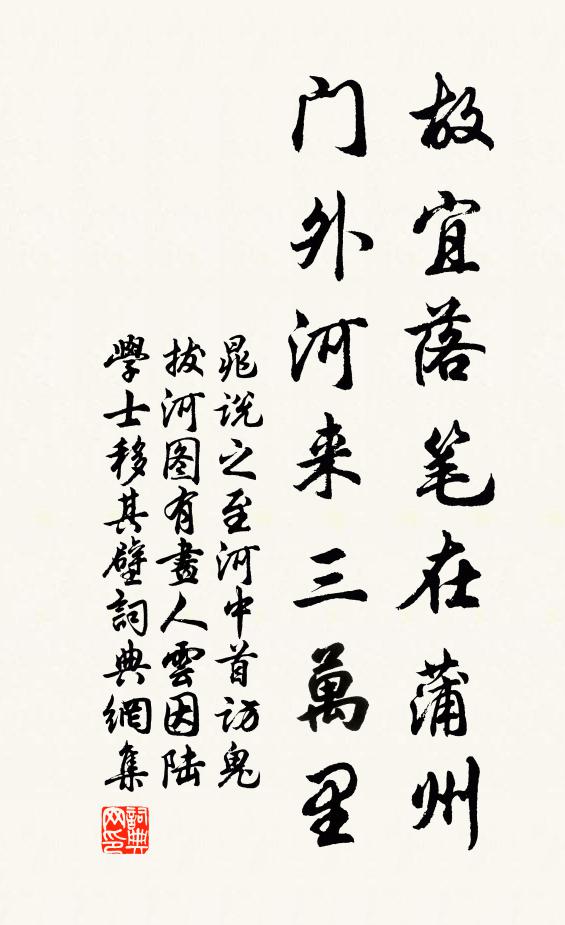 故宜落笔在蒲州
门外河来三萬里
晁说之至河中首访鬼
拔河图有畫人雲因陆
學士移其壁詞典網集
詞典网印